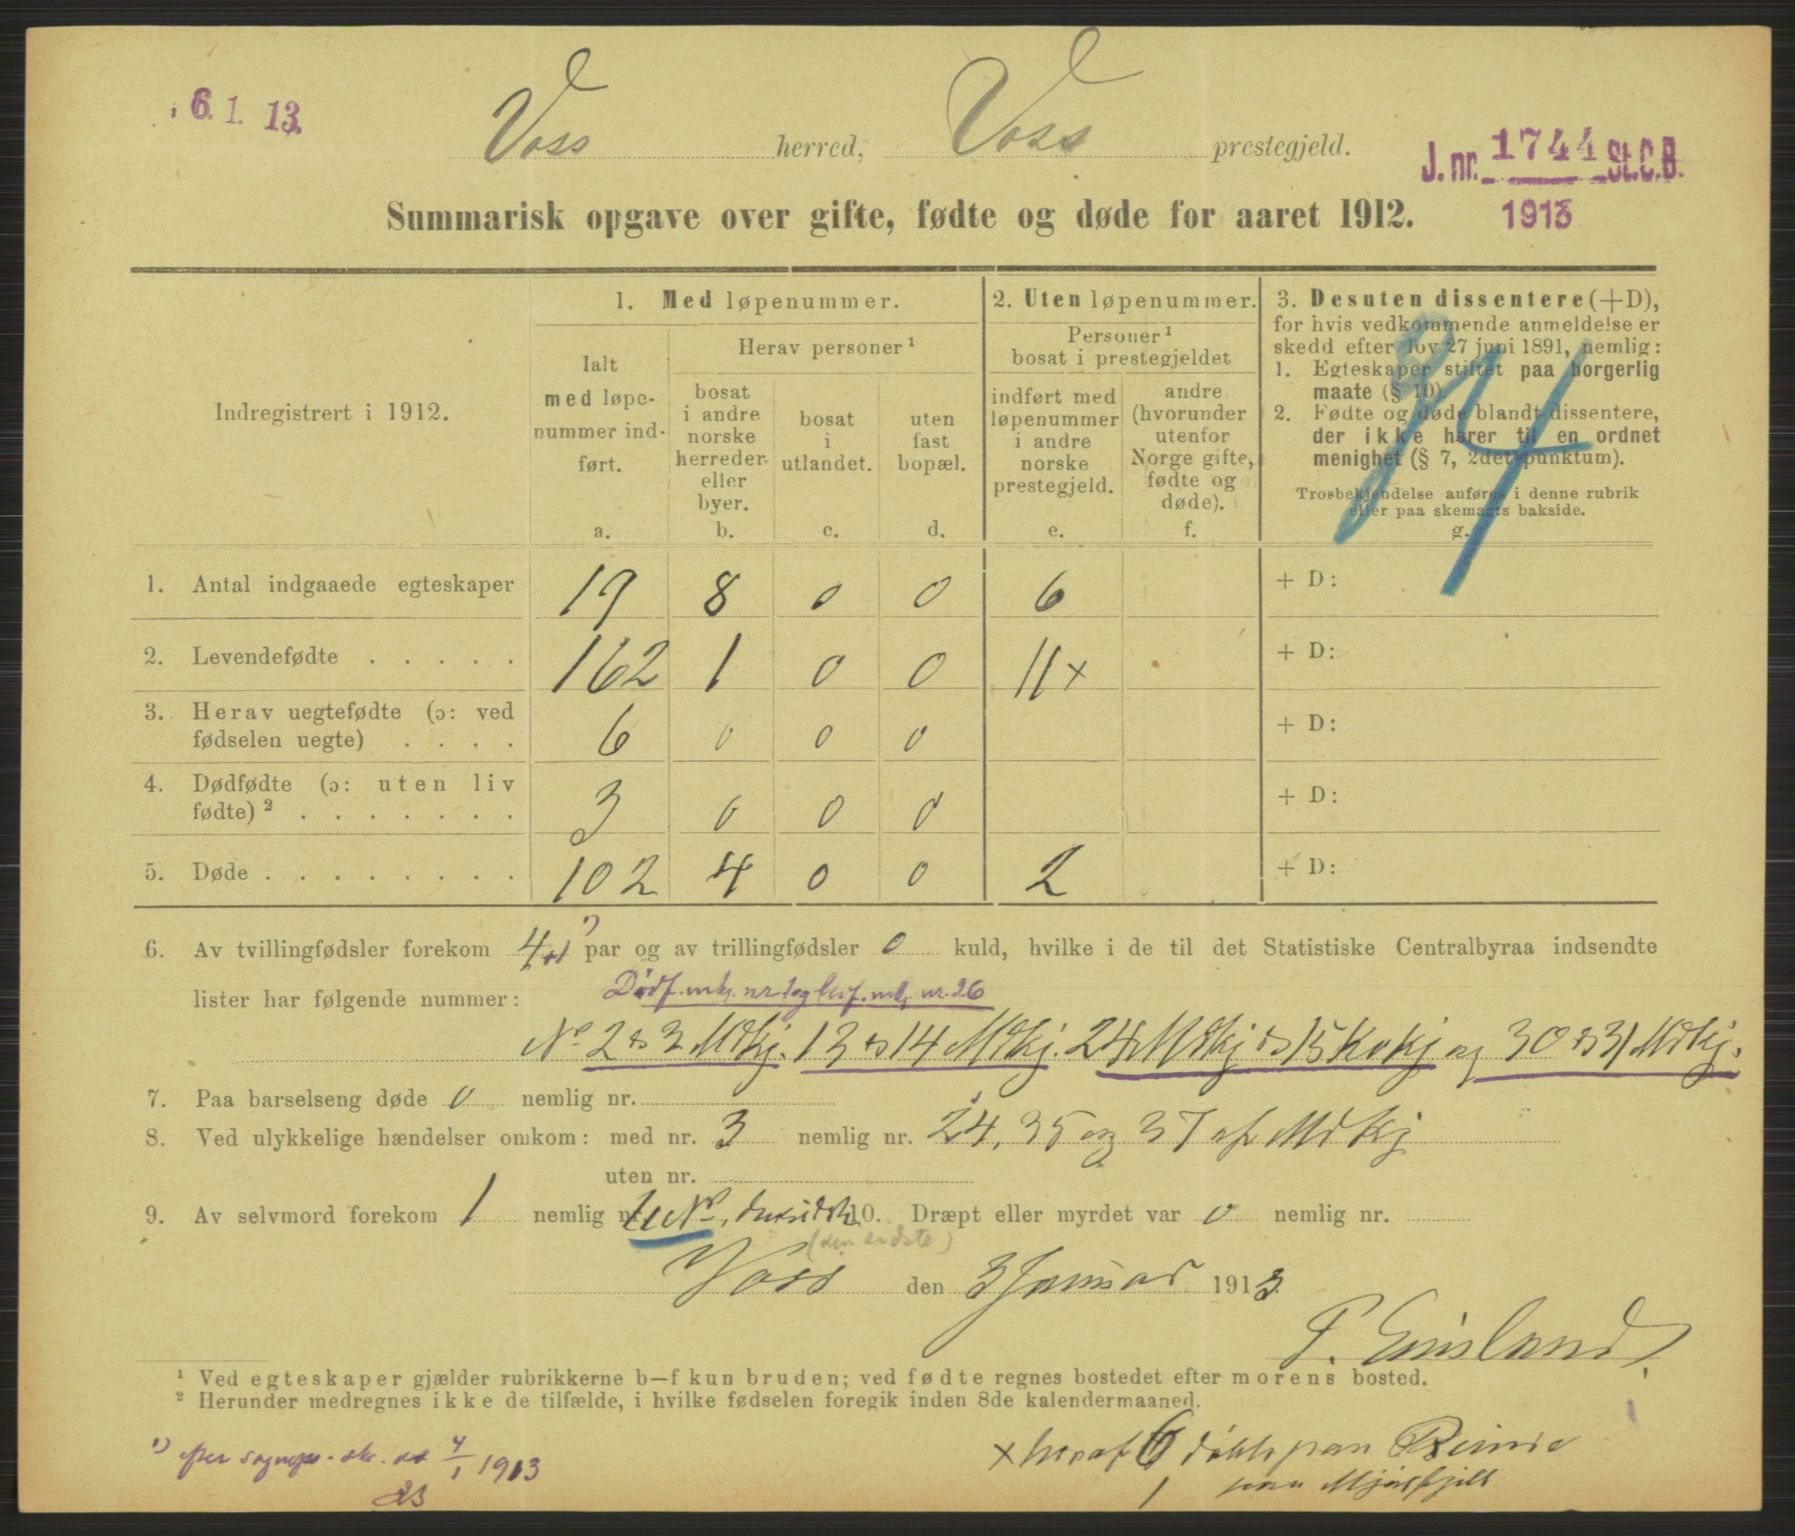 6. 1. 13.
Voss herred, Voss prestegjeld.
J. nr. 1744 St.C.B.
1913
Summarisk opgave over gifte, fødte og døde for aaret 1912.
Indregistrert i 1912.
1. Med løpenummer.
Ialt
med løpe-
nummer ind-
ført.
a.
Herav personer ¹
bosat
i andre
norske
herreder
eller
byer.
b.
bosat
i
utlandet.
c.
uten
fast
bopæl.
d.
2. Uten løpenummer.
Personer ¹
bosat i prestegjeldet
indført med
løpenummer
i andre
norske
prestegjeld.
e.
andre
(hvorunder
utenfor
Norge gifte,
fødte og
døde).
f.
3. Desuten dissentere (+D),
for hvis vedkommende anmeldelse er
skedd efter lov 27 juni 1891, nemlig:
1. Egteskaper stiftet paa borgerlig
maate (§ 10).
2. Fødte og døde blandt dissentere,
der ikke hører til en ordnet
menighet (§ 7, 2det punktum).
Trosbekjendelse anføres i denne rubrik
eller paa skemaets bakside.
g.
1. Antal indgaaede egteskaper 19 8 0 0 6 + D:
2. Levendefødte . . . . . 162 1 0 0 11 x + D:
3. Herav uegtefødte (ɔ: ved
fødselen uegte) . . . . 6 0 0 0 + D:
4. Dødfødte (ɔ: uten liv
fødte) ² . . . . . . . 3 0 0 0 + D:
5. Døde . . . . . . . . 102 4 0 0 2 + D:
6. Av tvillingfødsler forekom 4+1 ¹) par og av trillingfødsler 0 kuld, hvilke i de til det Statistiske Centralbyraa indsendte
lister har følgende nummer:
Dødf. mkj. nr 1 og levf. mkj. nr. 26
No 2 & 3 Mdkj. 13 & 14 Mdkj. 24 Mdkj & 15 Kvkj og 30 & 31 Mdkj.
7. Paa barselseng døde 0 nemlig nr.
8. Ved ulykkelige hændelser omkom: med nr. 3 nemlig nr. 24, 35 og 37 af Mdkj
uten nr.
9. Av selvmord forekom 1 nemlig nr. 10. Dræpt eller myrdet var 0 nemlig nr.
(den eidste)
Voss den 3 Januar 1913.
¹ Ved egteskaper gjælder rubrikkerne b—f kun bruden; ved fødte regnes bostedet efter morens bosted.
² Herunder medregnes ikke de tilfælde, i hvilke fødselen foregik inden 8de kalendermaaned.
¹) efter sognepr. skr. av 4/1 1913
x hvoraf 6 døbt paa
1 paa